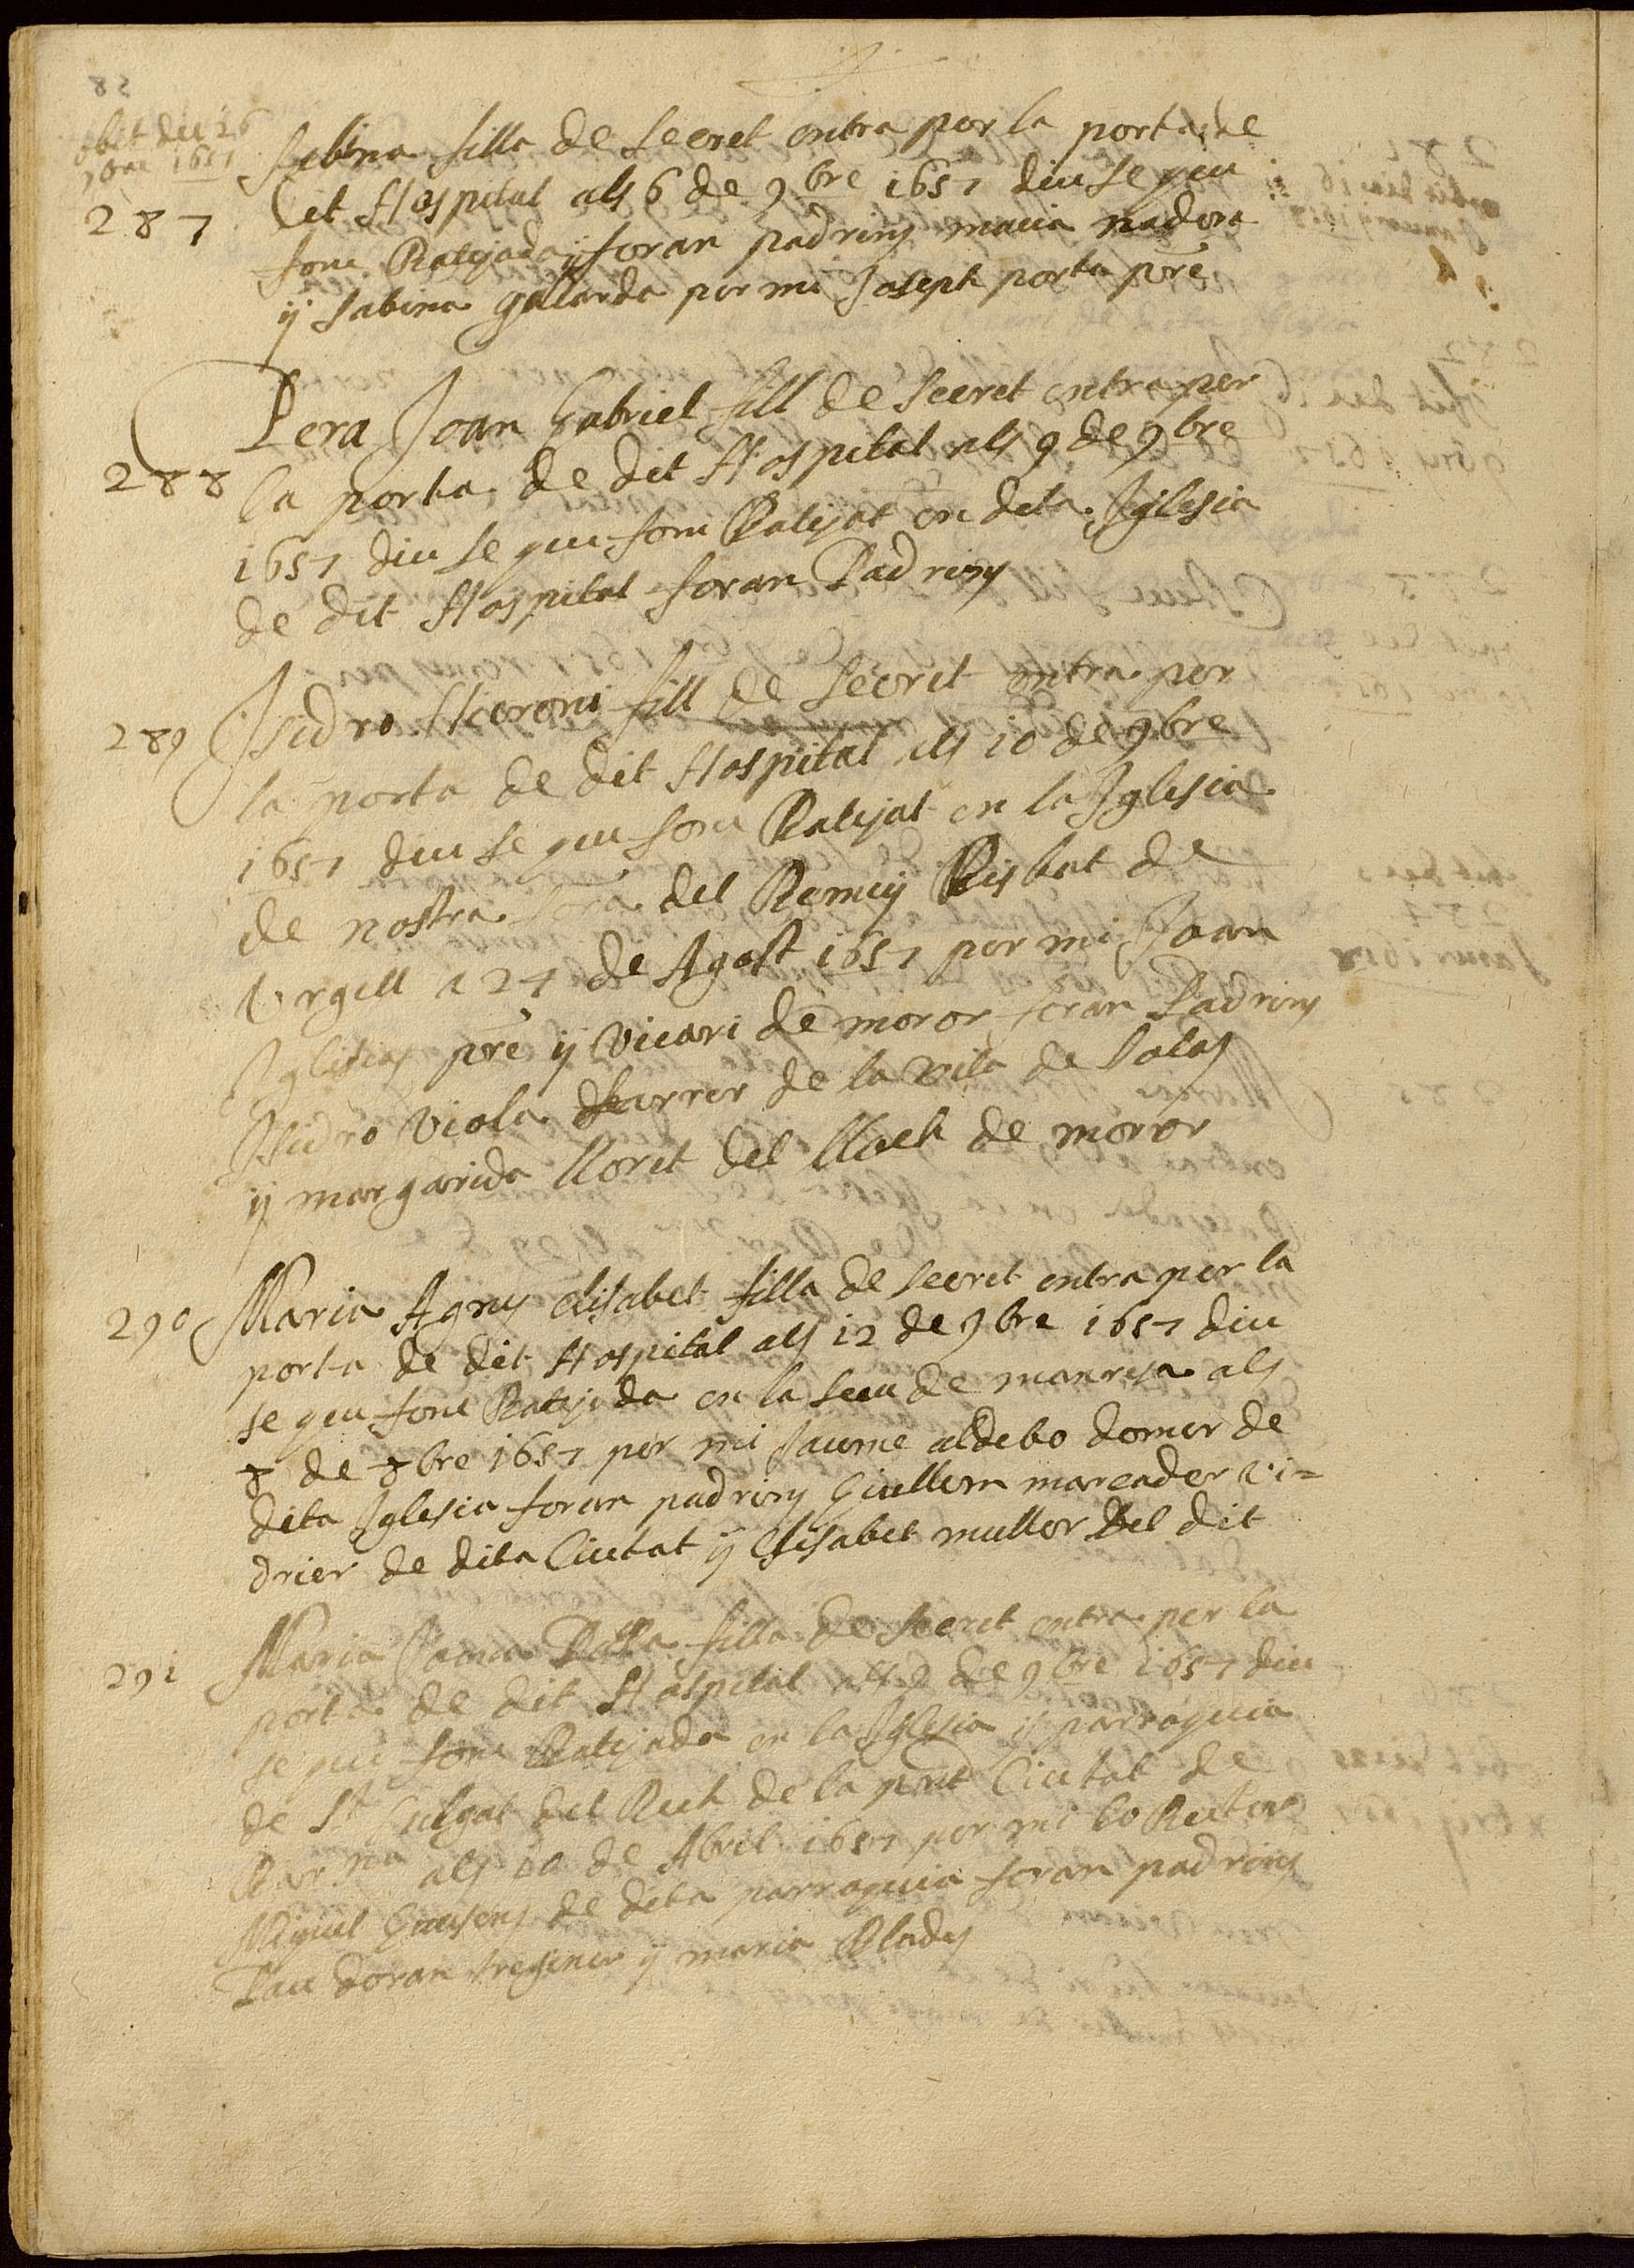 obit dit 26
9bre 1657
287
Sabina filla de secret entra per la porta de
dit Hospital als 6 de 9bre 1657 diuse que
fonc Batejada y foran padrins macia nadona
y sabina galarda per mi Joseph porta pre
288
Pera Joan Gabriel fill de secret entra per
la porta de dit Hospital als 9 de 9bre
1657 diuse que fonc Batejat en dita Iglesia
de dit Hospital foran Padrins
289
Isidro Hieroni fill de secret entra per
la porta de dit Hospital als 10 de 9bre
1657 diuse que fonc Batejat en la Iglesia
de nostra Sora del Remey Bisbat de
Urgell a 27 de Agost 1657 per mi Joan
Iglisias pre y vicari de moror foran Padrins
Isidro viola farrer de la vila de Salas
y margarida lloret del lloch de moror
290
Maria Agnes elisabet filla de secret entra per la
porta de dit Hospital als 12 de 9bre 1657 diu
se que fonc Batejada en la seu de manresa als
8 de 8bre 1657 per mi Jaume aldebo domer de
dita Iglesia foran padrins Guillem marcader vi=
drier de dita Ciutat y Elisabet muller del dit
291
Maria filla de secret entra per la
porta de dit Hospital als de 9bre 1657 diu
se que fonc Batejada en la Iglesia y parroquia
de St Culgat del Rech de la pnt Ciutat de
Barna als 10 de Abril 1657 per mi lo Rector
Miquel de dita parroquia foran padrins
Pau doran y maria Blades